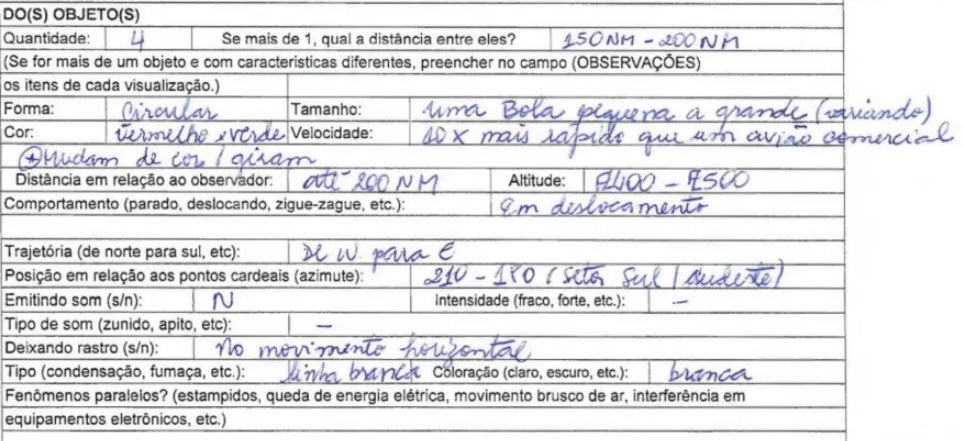 DO(S) OBJETO(S)
Quantidade: 4 Se mais de 1, qual a distância entre eles? 150NM - 200NM
(Se for mais de um objeto e com caracteristicas diferentes, preencher no campo (OBSERVAÇÕES)
os itens de cada visualização.)
Forma: Circular Tamanho: uma Bola pequena a grande (variando)
Cor: Vermelho e verde Velocidade: 10 x mais rapido que um avião comercial
Mudam de cor / giram
Distância em relação ao observador: até 200NM Altitude: FL400 - FL500
Comportamento (parado, deslocando, zigue-zague, etc.): Em deslocamento
Trajetória (de norte para sul, etc): De W para E
Posição em relação aos pontos cardeais (azimute): 210 - 180 (setor sul / sudeste)
Emitindo som (s/n): N Intensidade (fraco, forte, etc.): —
Tipo de som (zunido, apito, etc): —
Deixando rastro (s/n): No movimento horizontal
Tipo (condensação, fumaça, etc.): linha branca Coloração (claro, escuro, etc.): branca
Fenômenos paralelos? (estampidos, queda de energia elétrica, movimento brusco de ar, interferência em
equipamentos eletrônicos, etc.)